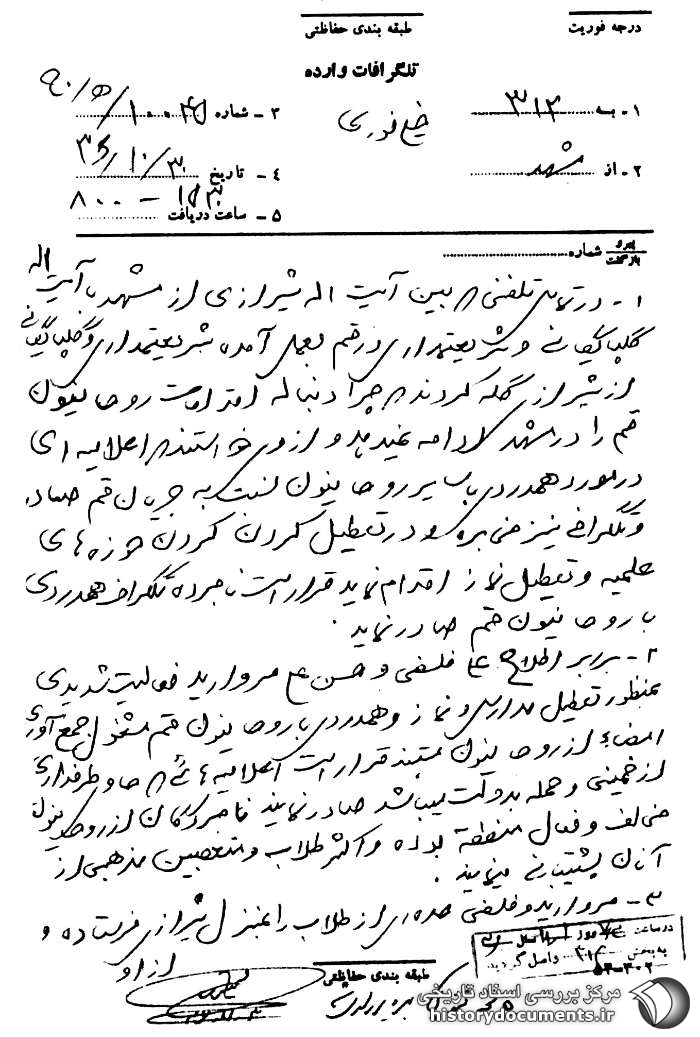 درجه فوریت
طبقه بندی حفاظتی
تلگرافات وارده
خیلی فوری
۱ - به ۳۱۲
۲ - از مشهد
۳ - شماره
۴ - تاریخ ۳۶/۱۰/۳۰
۵ - ساعت دریافت ۸۰۰ -
پیرو
بازگشت
شماره
۱ - در تماس تلفنی که بین آیت اله شیرازی از مشهد با آیت اله
گلپایگانی و شریعتمداری در قم بعمل آمده شریعتمداری و گلپایگانی
از شیرازی گله کردند که چرا دنباله اقدامات روحانیون
قم را در مشهد ادامه نمیدهد و از وی خواستند که اعلامیه ای
در مورد همدردی با سایر روحانیون نسبت به جریان قم صادر
و تلگرافی نیز مخابره و در تعطیل کردن کردن حوزه های
علمیه و تعطیل نماز اقدام نماید قرار است نامبرده تلگراف همدردی
با روحانیون قم صادر نماید.
۲ - برابر اطلاع فلسفی و مروارید فعالیت شدیدی
بمنظور تعطیل مدارس و نماز و همدردی با روحانیون قم مشغول جمع آوری
امضاء از روحانیون هستند قرار است اعلامیه هائی که حاوی طرفداری
از خمینی و حمله بدولت میباشد صادر نمایند نامبردگان از روحانیون
مخالف و فعال منطقه بوده و اکثر طلاب و متعصبین مذهبی از
آنان پشتیبانی مینمایند.
۳ - مروارید و فلسفی عده ای از طلاب را بمنزل شیرازی فرستاده و
از او
طبقه بندی حفاظتی
در ساعت
به بخش ۳۱۲ واصل گردید
مرکز بررسی اسناد تاریخی
historydocuments.ir